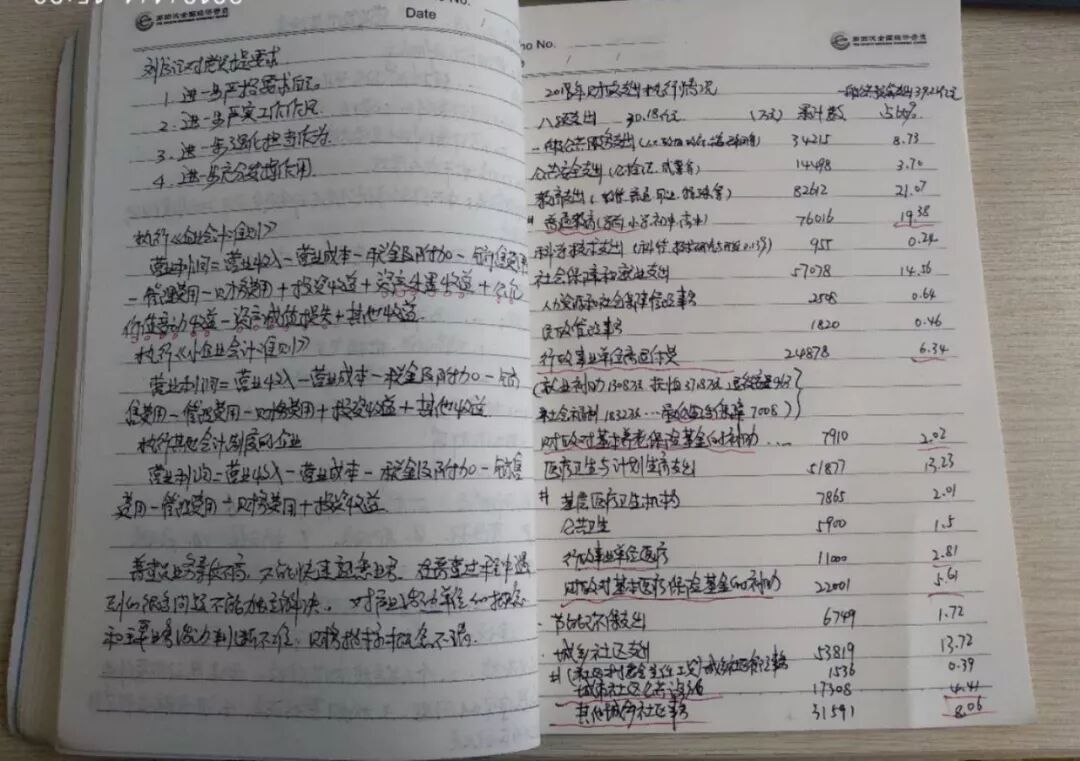 第四次全国经济普查
Date
No.
对党员提要求
1. 进一步严格要求自己。
2. 进一步严实工作作风
3. 进一步强化担当作为.
4. 进一步充分发挥作用.
执行《企业会计准则》
营业利润=营业收入-营业成本-税金及附加-销售费用
-管理费用-财务费用+投资收益+资产处置收益+公允
价值变动收益-资产减值损失+其他收益.
执行《小企业会计准则》
营业利润=营业收入-营业成本-税金及附加-销
售费用-管理费用-财务费用+投资收益+其他收益.
执行其他会计制度的企业
营业利润=营业收入-营业成本-税金及附加-销售
费用-管理费用-财务费用+投资收益
普查业务素质不高, 不能快速熟悉业务. 在普查过程中遇
到的很多问题不能独立解决. 对产业活动单位的概念
和主要业务活动判断不准, 财务指标概念不清.
No.
第四次全国经济普查
2018年财政支出执行情况 一般公共预算支出39.24亿元
八项支出 30.18亿元 (万元) 累计数 占比%
一般公共服务支出 34215 8.73
公共安全支出(公检法、司 14498 3.70
教育支出 82612 21.07
# 普通教育(学前 小学 初中 高中) 76016 19.38
科学技术支出 955 0.24
社会保障和就业支出 57078 14.56
人力资源和社会保障管理事务 2508 0.64
民政管理事务 1820 0.46
行政事业单位离退休费 24878 6.34
(就业补助1308万 抚恤3718万
社会福利 7008)
财政对基本养老保险基金的补助... 7910 2.02
医疗卫生与计划生育支出 51877 13.23
# 基层医疗卫生机构 7865 2.01
公共卫生 5900 1.5
行政事业单位医疗 11000 2.81
财政对基本医疗保险基金的补助 22001 5.61
节能环保支出 6749 1.72
城乡社区支出 53819 13.72
# 城乡社区管理事务 1536 0.39
城乡社区公共设施 17308 4.41
其他城乡社区事务 31591 8.06